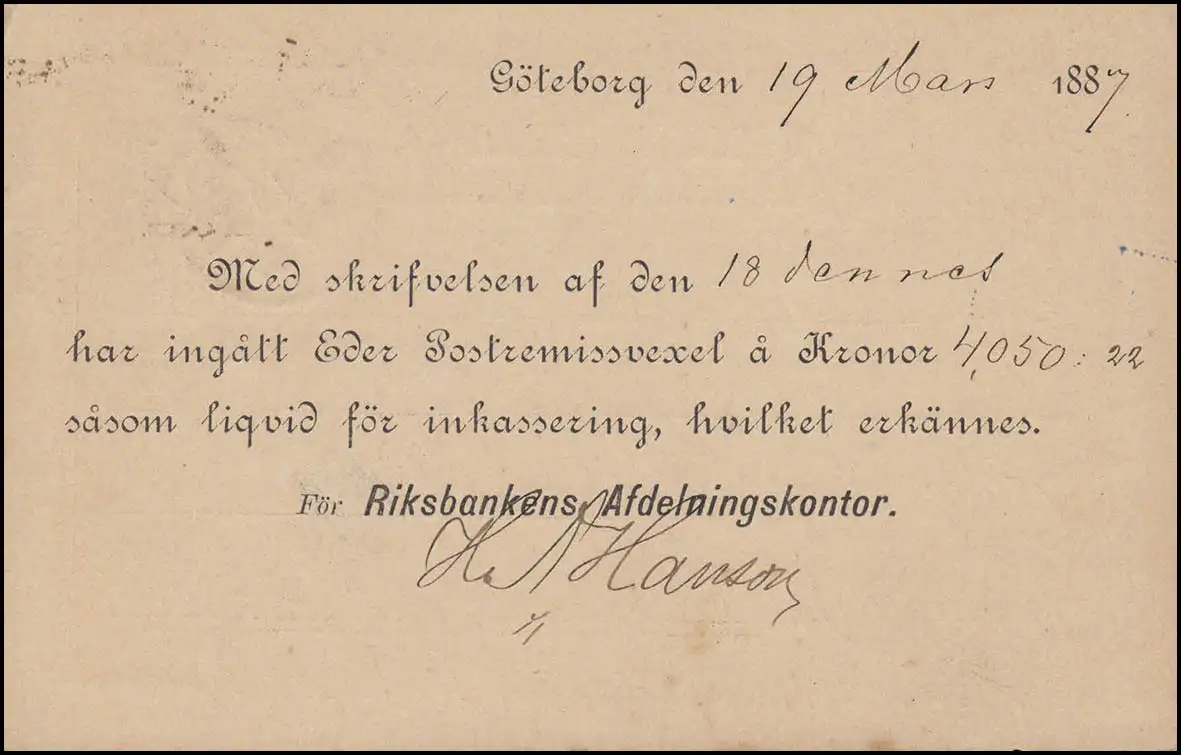 Göteborg den 19 Mars 1887.
Med skrifvelsen af den 18 dennes
har ingått Eder Postremissvexel å Kronor 4,050: 22
såsom liqvid för inkassering, hvilket erkännes.
För Riksbankens Afdelningskontor.
H. N Hanson